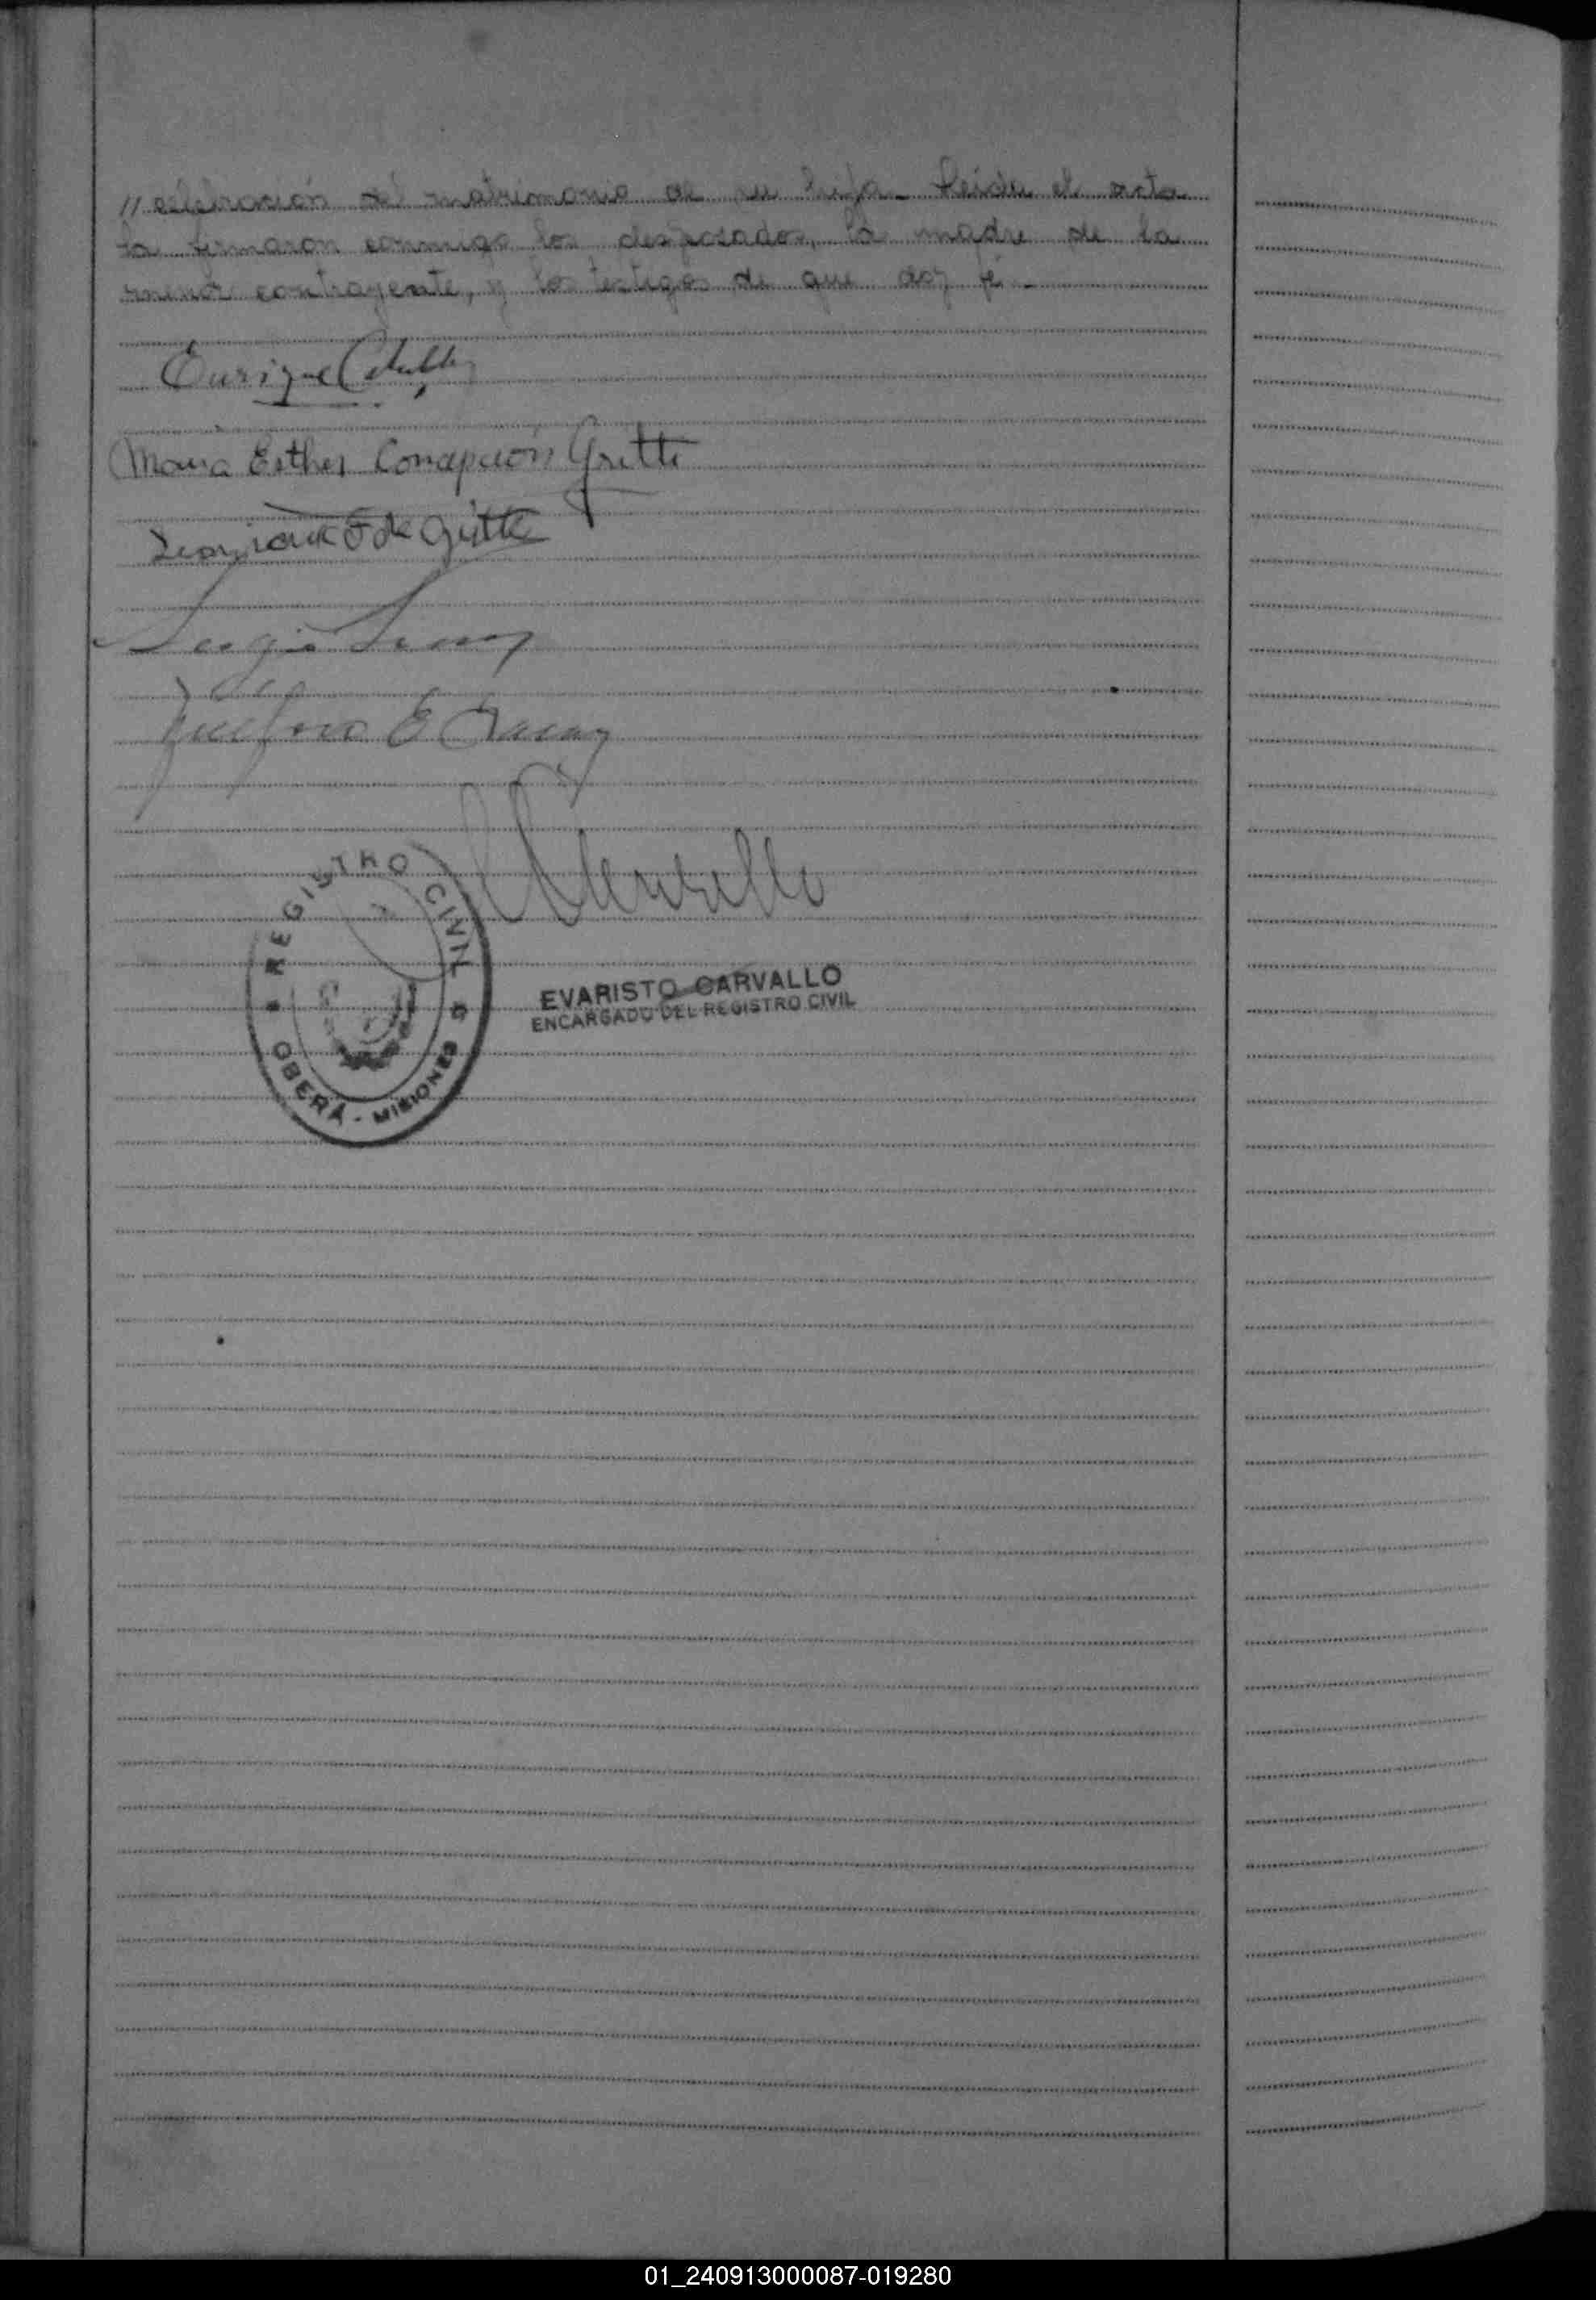 // celebración del matrimonio de su hija - Leída el acta
la firmaron conmigo los desposados, la madre de la
menor contrayente, y los testigos de que doy fé -
Enrique
Maria Esther Concepción Gritti
de Gritti
Sergio
E
Carvallo
REGISTRO CIVIL
OBERÁ - MISIONES
EVARISTO CARVALLO
ENCARGADO DEL REGISTRO CIVIL
01_240913000087-019280